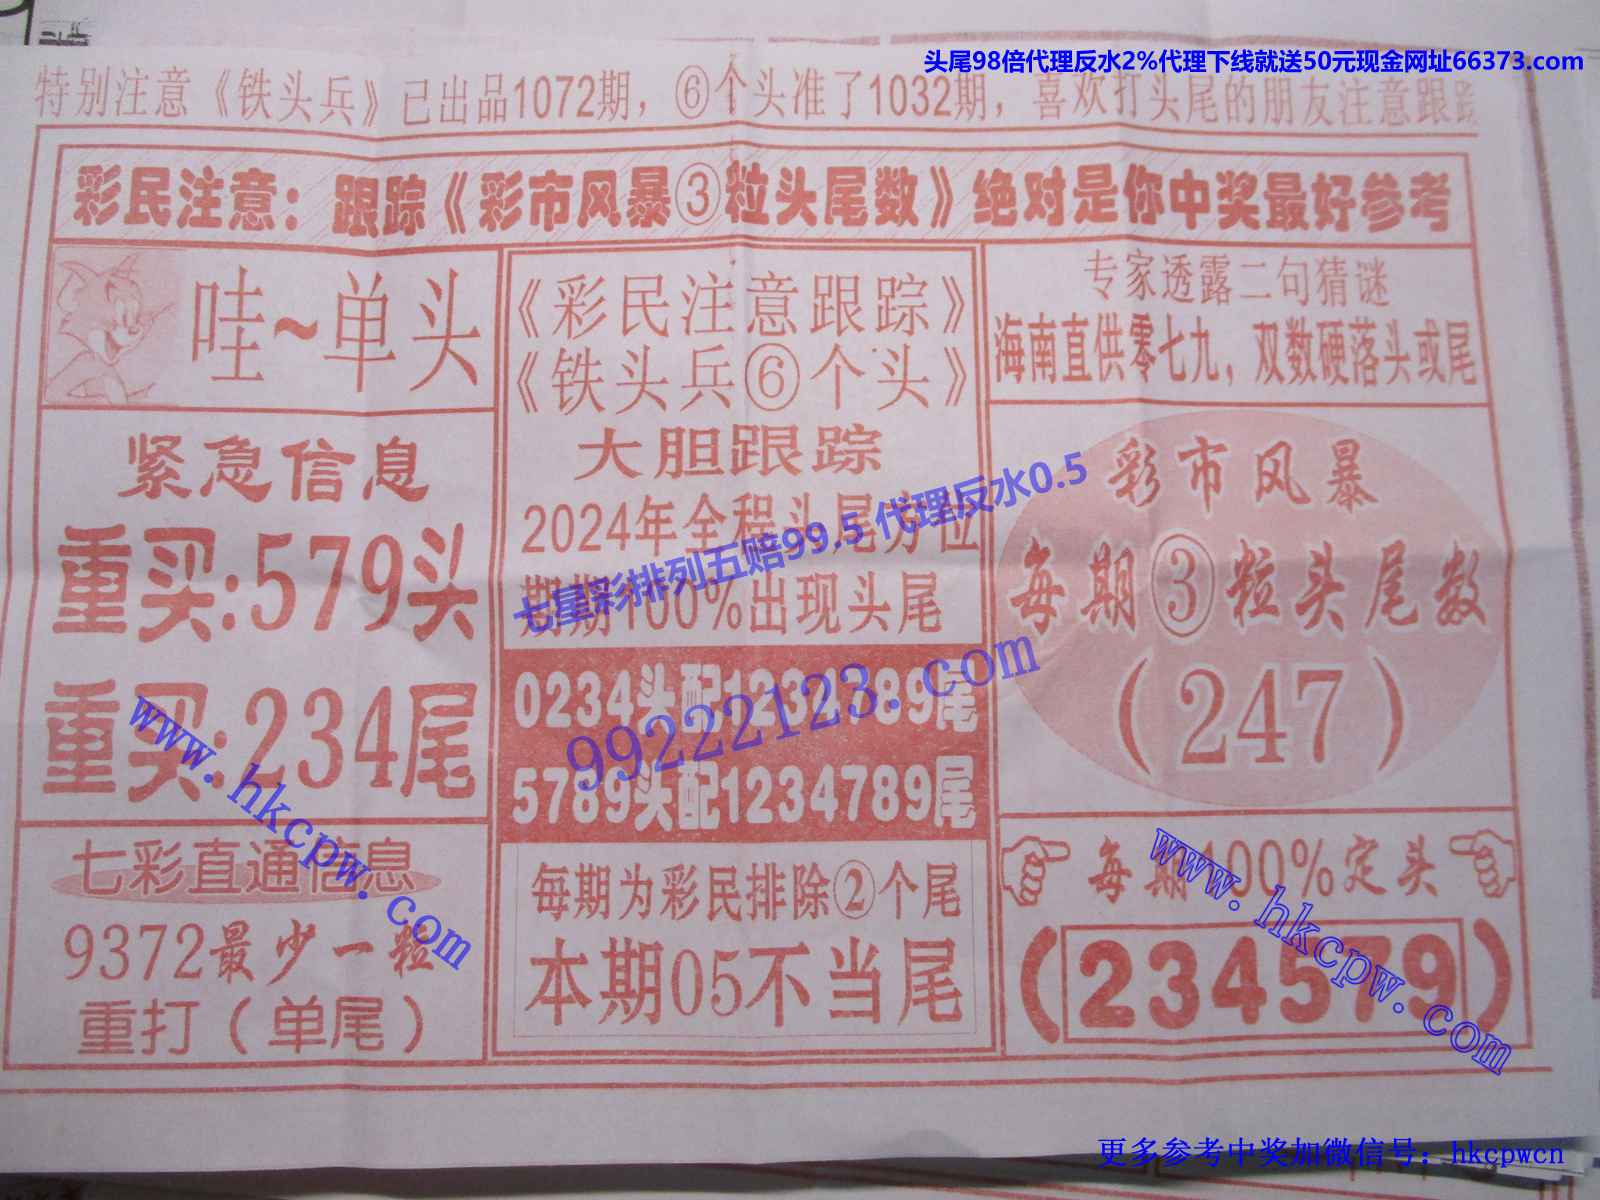 头尾98倍代理反水2%代理下线就送50元现金网址66373.com
特别注意《铁头兵》已出品1072期，⑥个头准了1032期，喜欢打头尾的朋友注意跟踪
彩民注意：跟踪《彩市风暴③粒头尾数》绝对是你中奖最好参考
哇~单头
紧急信息
重买:579头
重买:234尾
七彩直通信息
9372最少一粒
重打（单尾）
《彩民注意跟踪》
《铁头兵⑥个头》
大胆跟踪
2024年全程头尾方位
期期100%出现头尾
0234头配1234789尾
5789头配1234789尾
每期为彩民排除②个尾
本期05不当尾
专家透露二句猜谜
海南直供零七九，双数硬落头或尾
彩市风暴
每期③粒头尾数
（247）
每期100%定头
（234579）
七星彩排列五赔99.5 代理反水0.5
99222123.com
www.hkcpw.com
www.hkcpw.com
更多参考中奖加微信号：hkcpwcn